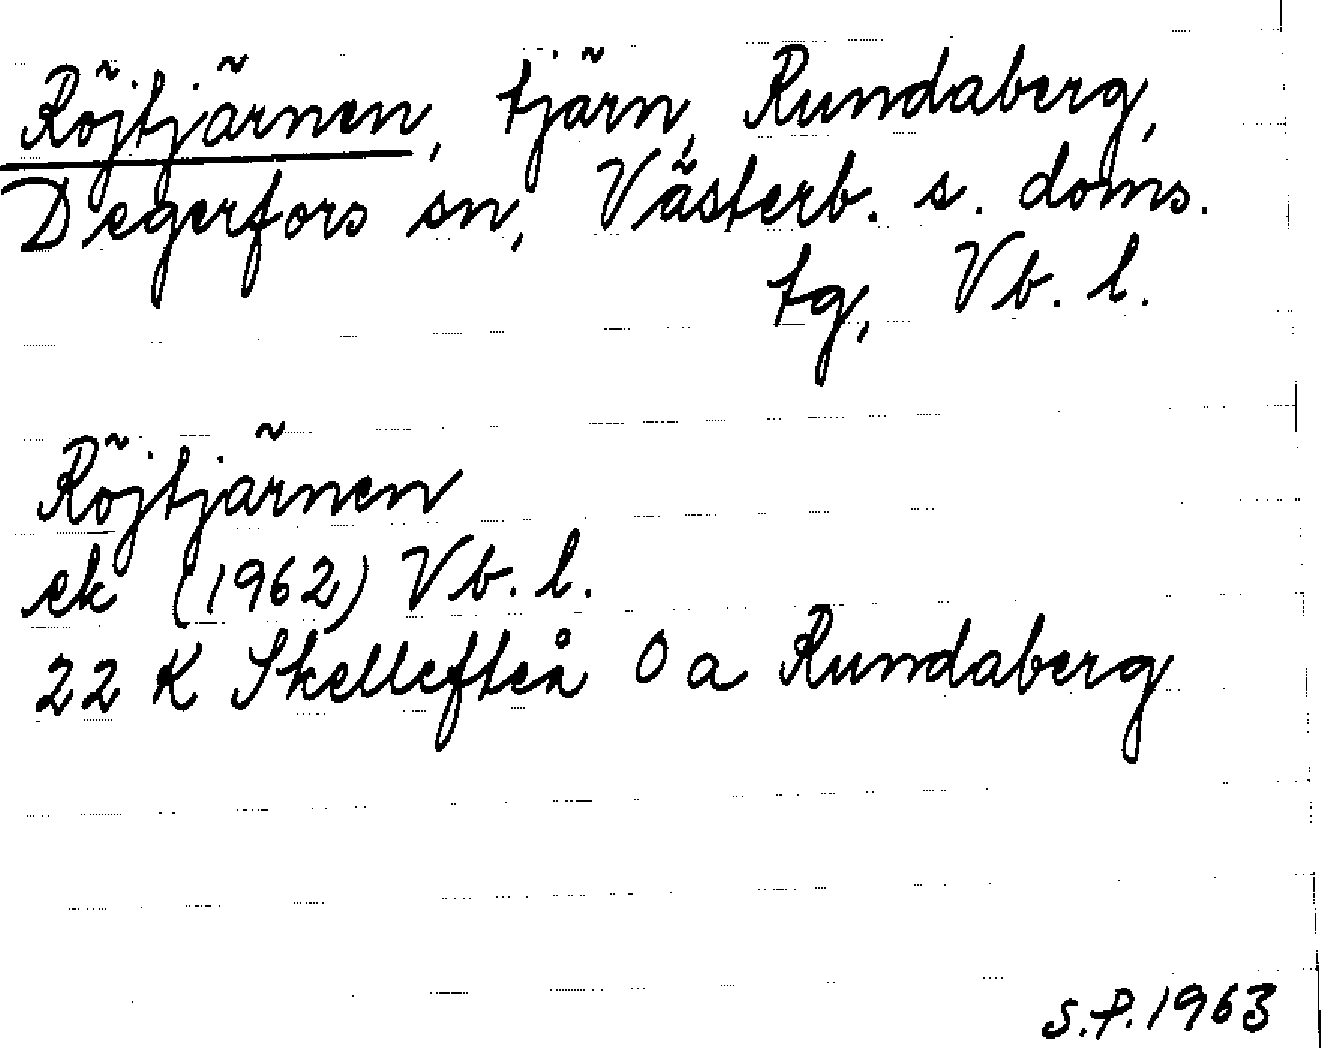 Röjtjärnen, tjärn, Rundaberg,
Degerfors sn, Västerb. s. doms.
tg, Vb. l.
Röjtjärnen
ek (1962) Vb. l.
22 K Skellefteå 0 a Rundaberg
S.P. 1963